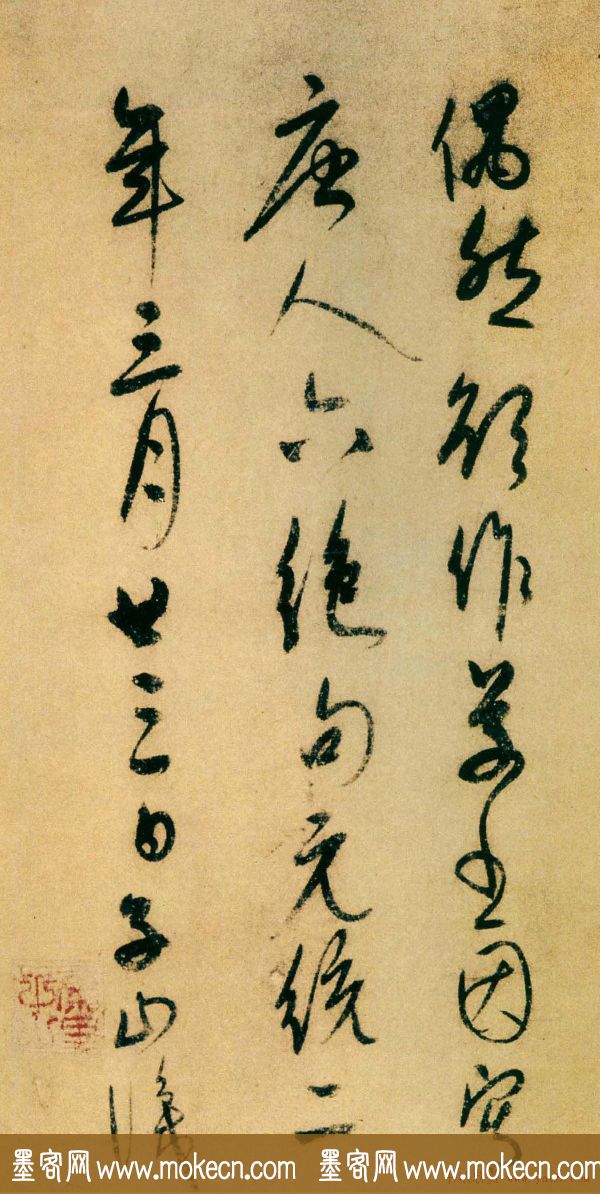 偶然欲作草书因写
唐人六绝句元统二
年三月廿三日子山識
墨客网 www.mokecn.com 墨客网 www.mokecn.com